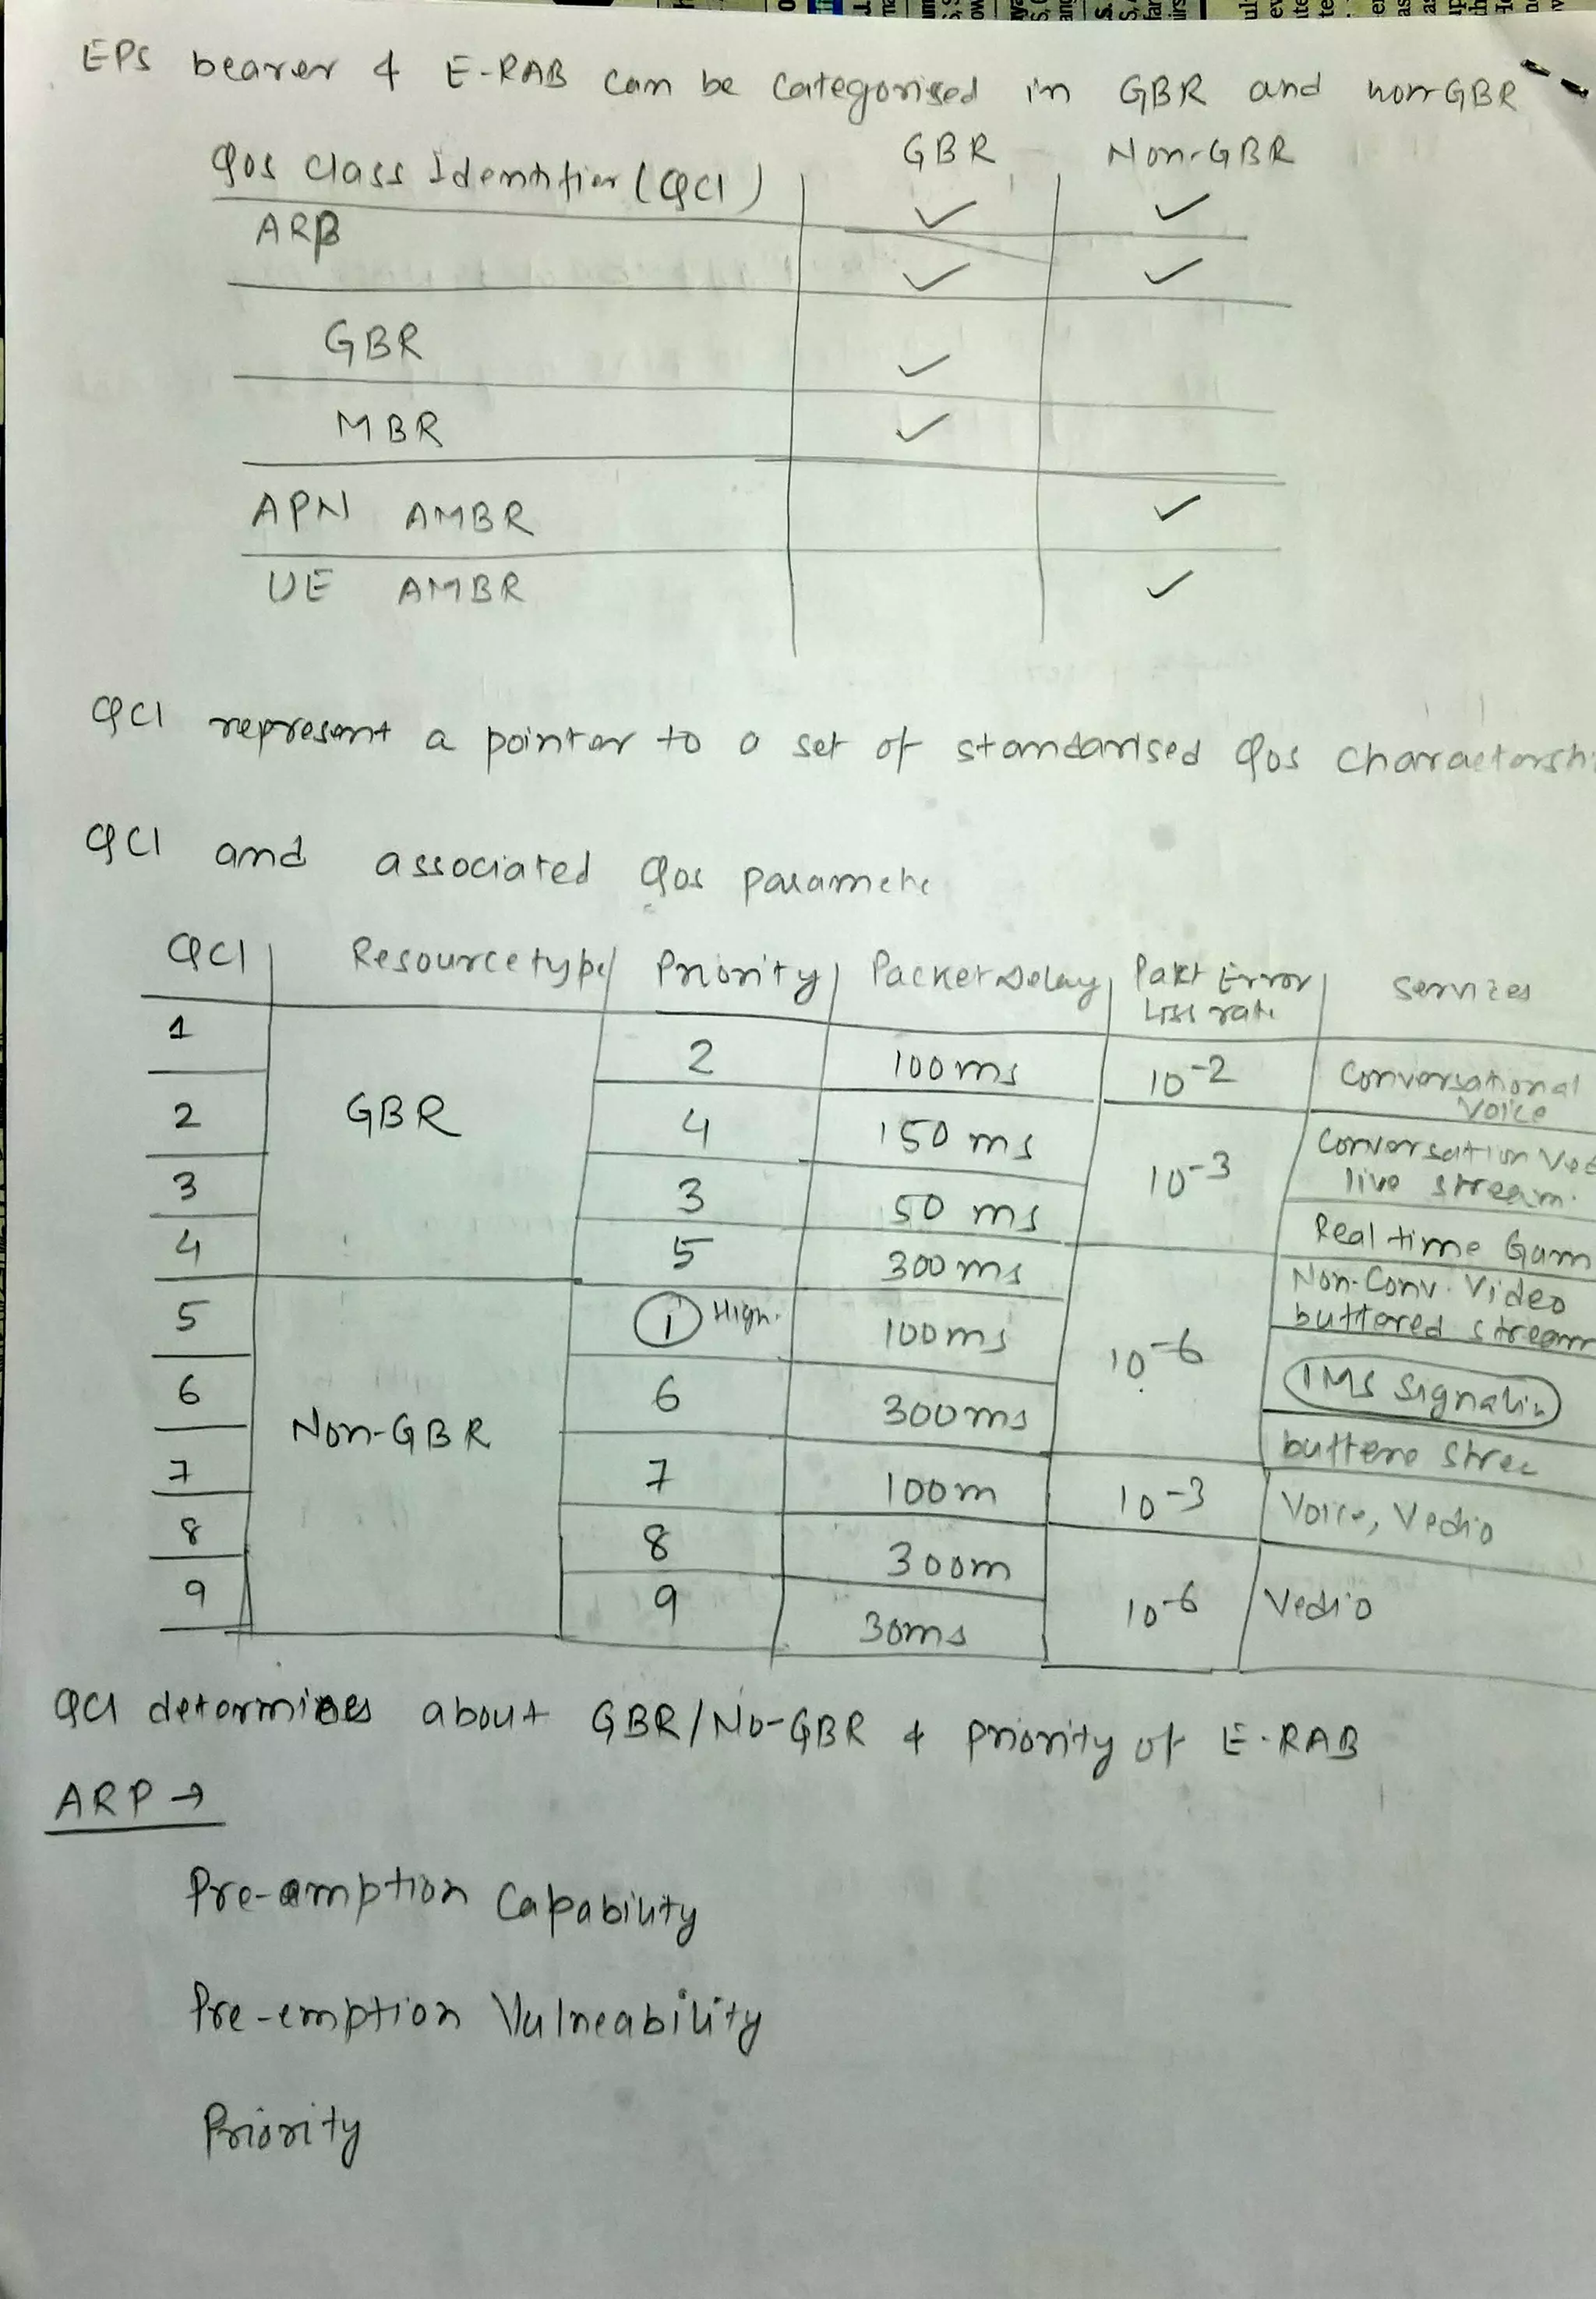 EPS bearer & E-RAB can be categorised in GBR and non-GBR
GBR Non-GBR
QoS Class Identifier (QCI) ✓ ✓
ARP ✓ ✓
GBR ✓
MBR ✓
APN AMBR ✓
UE AMBR ✓
QCI represent a pointer to a set of standarised QoS
QCI and associated QoS
QCI Resource type Priority Packet Delay Pakt Error Services
Loss rate
1 GBR 2 100ms 10-2 Conversational
Voice
2 4 150 ms 10-3 Conversation
live stream.
3 3 50 ms Real time Gam
4 5 300ms 10-6 Non-Conv. Video
buffered stream
5 Non-GBR 1 High. 100ms IMS
6 6 300ms
7 7 100m 10-3 Voice, Vedio
8 8 300m 10-6 Vedio
9 9 30ms
QCI determines about GBR/No-GBR & Priority of E-RAB
ARP →
Pre-emption Capability
Pre-emption Vulneability
Priority